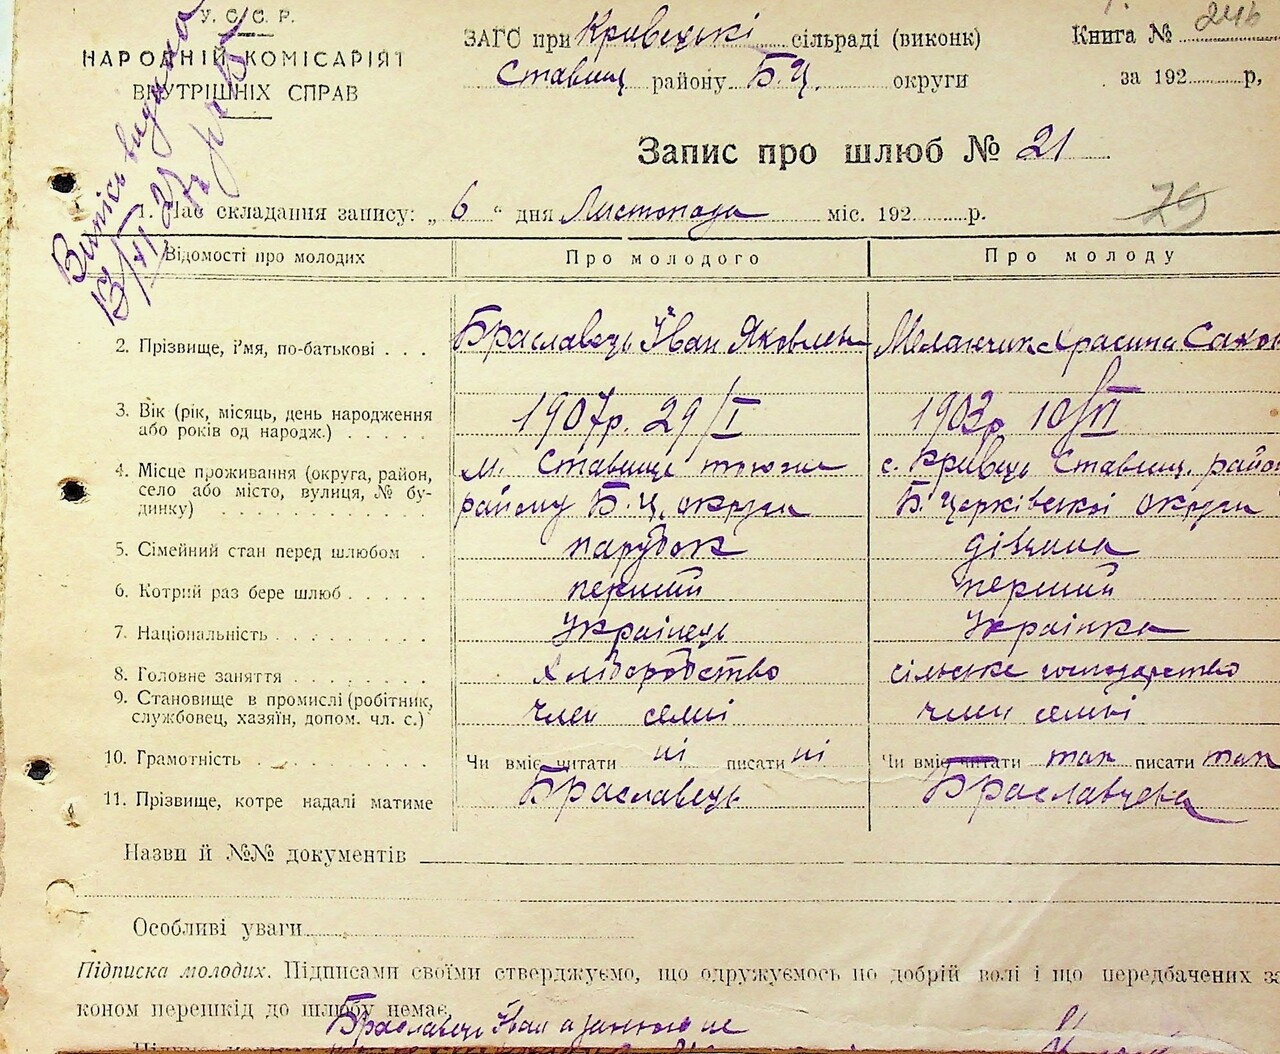 У. С. С. Р.
НАРОДНІЙ КОМІСАРІЯТ
ВНУТРІШНІХ СПРАВ
Випись видана
13/XII 27
ЗАГС при Кривецькі сільраді (виконк)
Ставищ району Б.Ц. округи
Книга №
за 192 р,
246
Запис про шлюб № 21
1. Час складання запису: „ 6 " дня Листопада міс. 192 р.
75
Відомості про молодих
Про молодого
Про молоду
2. Прізвище, ім'я, по-батькові . . .
Браславець Іван Яковлев
3. Вік (рік, місяць, день народження
або років од народж.) . . . . .
1907р. 29/I
1903р 10/VI
4. Місце проживання (округа, район,
село або місто, вулиця, № бу-
динку) . . . . . . . . . . . .
м. Ставище
району Б.Ц. округи
с. Кривець Ставищ. район
Б. Церківської округи
5. Сімейний стан перед шлюбом .
парубок
дівчина
6. Котрий раз бере шлюб . . . . .
перший
перший
7. Національність . . . . . . . .
Українець
Українка
8. Головне заняття . . . . . . .
Хліборобство
сільське господарство
9. Становище в промислі (робітник,
службовец, хазяїн, допом. чл. с.)
член семі
член семьі
10. Грамотність . . . . . . . . .
Чи вміє читати ні писати ні
Чи вміє читати так писати так
11. Прізвище, котре надалі матиме
Браславець
Браславцева
Назви й №№ документів
Особливі уваги
Підписка молодих. Підписами своїми стверджуємо, що одружуємось по добрій волі і що передбачених за
коном перешкід до шлюбу немає.
Браславець Іван а за